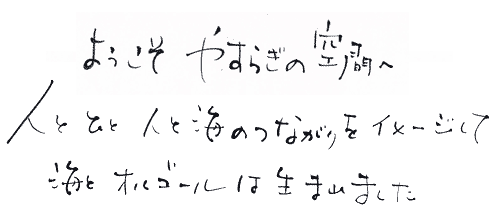 ようこそ やすらぎの空間へ
人と ひと 人と海のつながりをイメージして
海とオルゴールは生まれました